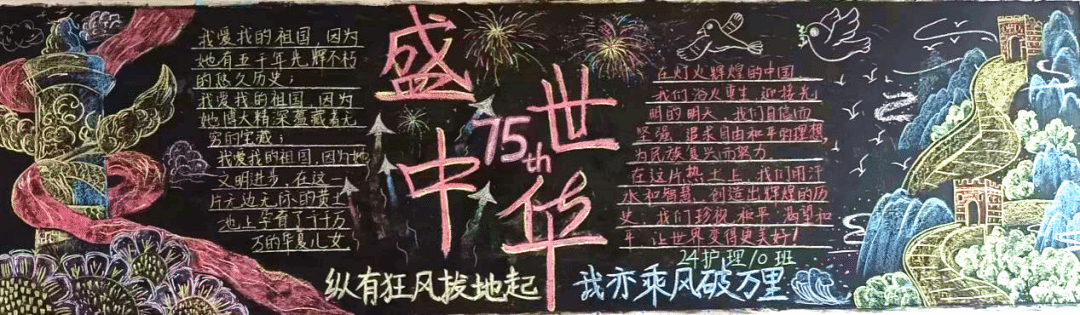 我爱我的祖国，因为
她有五千年光辉不朽
的悠久历史；
我爱我的祖国，因为
她博大精深蕴藏着无
穷的宝藏；
我爱我的祖国，因为地
文明进步，在这一
片无边无际的黄土
地上孕育了千千万
万的华夏儿女。
盛世
中华
75th
在灯火辉煌的中国，
我们浴火重生，迎接光
明的明天，我们自信而
坚强，追求自由和平的理想，
为民族复兴而努力。
在这片热土上，我们用汗
水和智慧，创造出辉煌的历
史，我们珍视和平，渴望和
平，让世界变得更美好！
24护理10班
纵有狂风拔地起
我亦乘风破万里